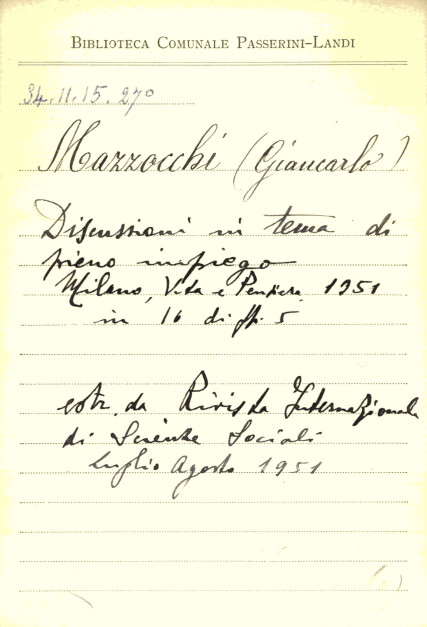 BIBLIOTECA COMUNALE PASSERINI-LANDI
34.11.15.27º
Mazzocchi (Giancarlo)
Discussioni in tema di
pieno impiego
Milano, Vita e Pensiero 1951
in 16 di pp. 5
estr. da Rivista Internazionale
di Scienze Sociali
luglio Agosto 1951